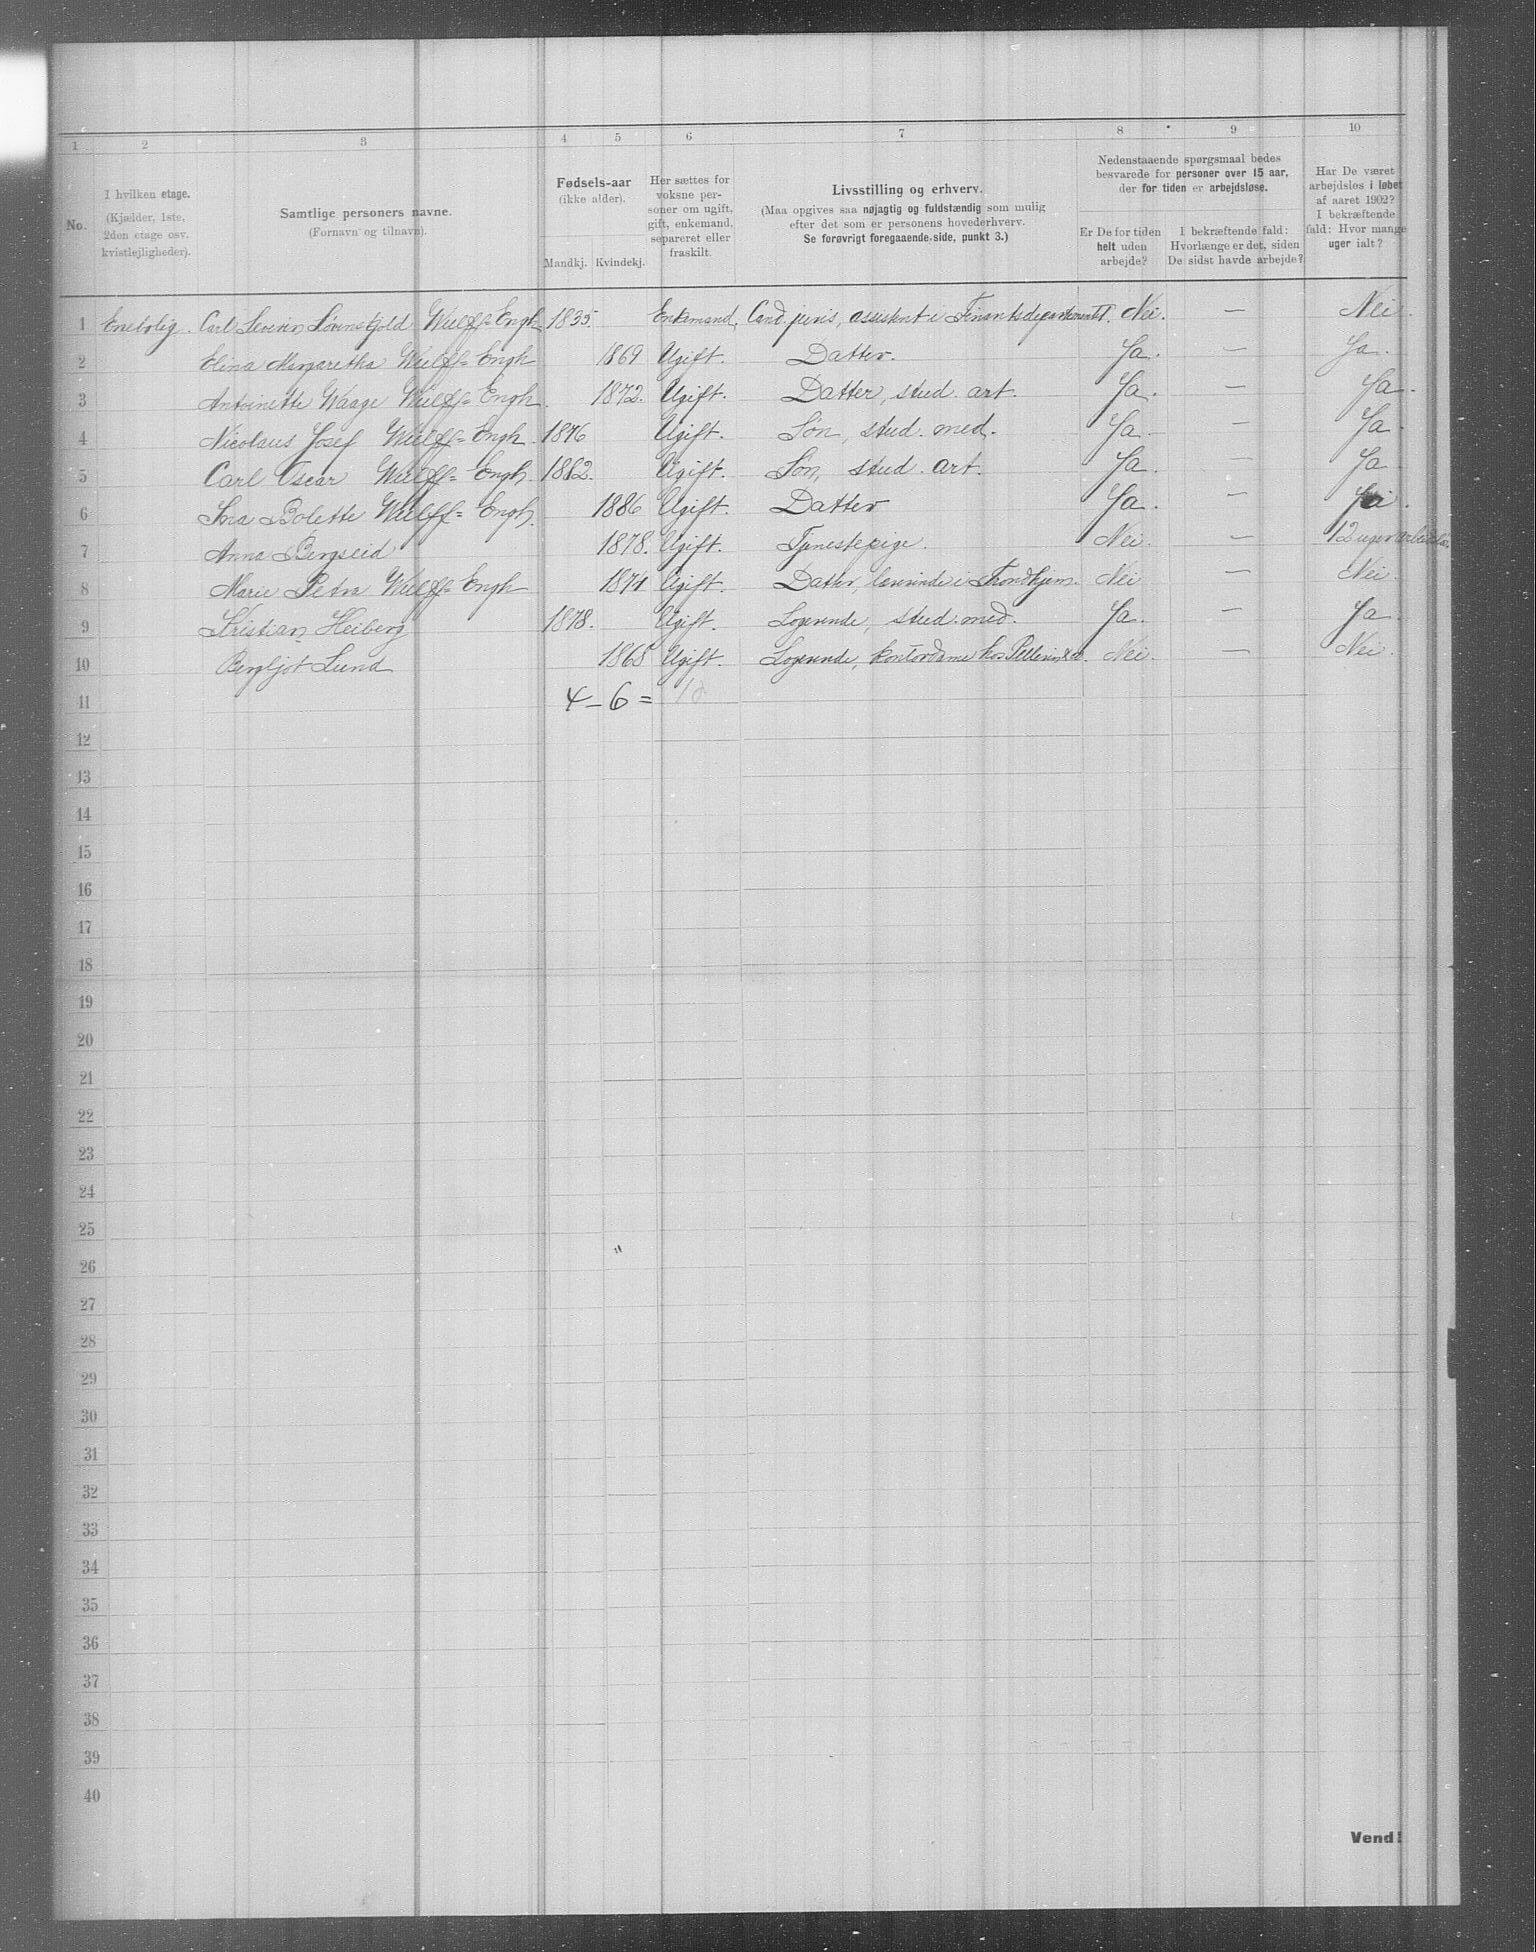 1 2 3 4 5 6 7 8 9 10
No.
I hvilken etage.
(Kjælder, 1ste,
2den etage osv.
kvistlejligheder).
Samtlige personers navne.
(Fornavn og tilnavn).
Fødsels-aar
(ikke alder).
Mandkj. Kvindekj.
Her sættes for
voksne per-
soner om ugift,
gift, enkemand,
separeret eller
fraskilt.
Livsstilling og erhverv.
(Maa opgives saa nøjagtig og fuldstændig som mulig
efter det som er personens hovederhverv.
Se forøvrigt foregaaende side, punkt 3.)
Nedenstaaende spørgsmaal bedes
besvarede for personer over 15 aar,
der for tiden er arbejdsløse.
Er De for tiden
helt uden
arbejde?
I bekræftende fald:
Hvorlænge er det, siden
De sidst havde arbejde?
Har De været
arbejdsløs i løbet
af aaret 1902?
I bekræftende
fald: Hvor mange
uger ialt?
1 Enebolig. Carl Severin Løvenskjold Wulff=Engh 1835. Enkemand. Cand. juris, assistent i Finantsdepartementet. Nei. — Nei.
2 Elina Margaretha Wulff=Engh 1869 Ugift. Datter. Ja. — Ja.
3 Antoinette Waage Wulff=Engh. 1872. Ugift. Datter, stud. art. Ja. — Ja.
4 Nicolaus Josef Wulff=Engh. 1876 Ugift. Søn, stud. med. Ja. — Ja.
5 Carl Oscar Wulff=Engh. 1882. Ugift. Søn, stud. art. Ja. — Ja.
6 Bolette Wulff=Engh. 1886 Ugift. Datter Ja. —
7 Anna Bergseid 1878. Ugift. Tjenestepige. Nei. — 12 uger
8 Marie Petra Wulff=Engh 1874 Ugift. Datter, lærerinde i Trondhjem. Nei — Nei.
9 Kristian Heiberg 1878. Ugift. Logerende, stud. med. Ja. — Ja.
10 Bergljot Lund 1868 Ugift. Logerende, kontordame hos Nei. — Nei.
11 4 - 6 = 10
12
13
14
15
16
17
18
19
20
21
22
23
24
25
26
27
28
29
30
31
32
33
34
35
36
37
38
39
40
Vend!